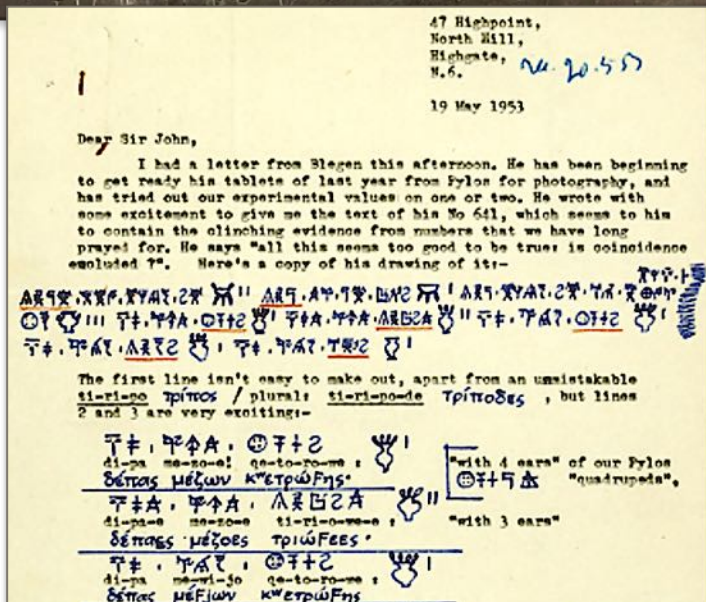 47 Highpoint,
North Hill,
Highgate,
N.6.
20.5.53
19 May 1953
Dear Sir John,
I had a letter from Blegen this afternoon. He has been beginning
to get ready his tablets of last year from Pylos for photography, and
has tried out our experimental values on one or two. He wrote with
some excitement to give me the text of his No 641, which seems to him
to contain the clinching evidence from numbers that we have long
prayed for. He says "all this seems too good to be true: is coincidence
excluded ?". Here's a copy of his drawing of it:-
The first line isn't easy to make out, apart from an unmistakable
ti-ri-po τρίπος / plural: ti-ri-po-de τρίποδες , but lines
2 and 3 are very exciting:-
𐀇𐀞 , 𐀕𐀿𐀁 , 𐀤𐀵𐀫𐀸 I
di-pa me-zo-e! qe-to-ro-we : "with 4 ears" of our Pylos
δέπας μέζων κʷετρώϝης· 𐀤𐀵𐀫𐀡𐀠 "quadrupeds".
𐀇𐀞𐀁 , 𐀕𐀿𐀁 , 𐀴𐀪𐀃𐀸𐀁 II
di-pa-e me-zo-e ti-ri-o-we-e : "with 3 ears"
δέπαες μέζοες τριώϝεες·
𐀇𐀞 , 𐀕𐀹𐀍 , 𐀤𐀵𐀫𐀸 I
di-pa me-wi-jo qe-to-ro-we :
δέπας μέϝjων κʷετρώϝης